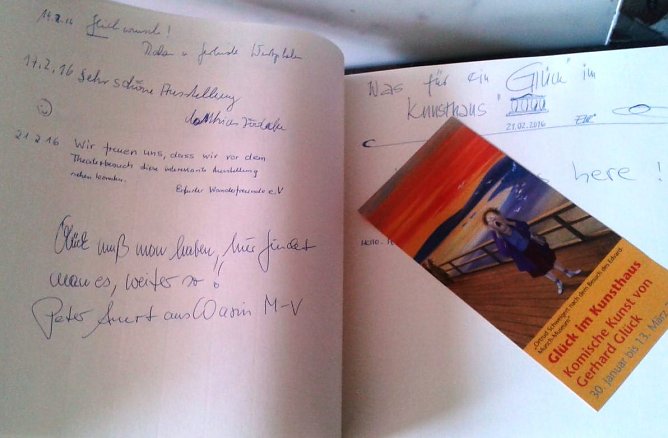 14.2.16 Glückwunsch!
17.2.16 Sehr schöne Ausstellung
Matthias
21.2.16 Wir freuen uns, dass wir vor dem
Theaterbesuch diese interessante Ausstellung
sehen konnten.
Erfurter Wanderfreunde e.V
Glück muß man haben, hier findet
man es, weiter so!
Peter aus Warin M-V
Was für ein "Glück" im
Kunsthaus"
21.02.2016
here!
"Ortrud Schwengen nach dem Besuch des Edvard-
Munch-Museum"
Glück im Kunsthaus
Komische Kunst von
Gerhard Glück
30. Januar bis 13. März